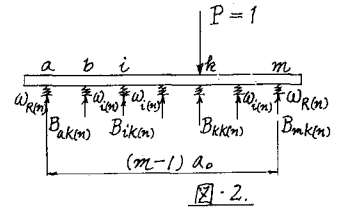 P=1
a b i k m
ω_R(n) ω_i(n) ω_i(n) ω_i(n) ω_R(n)
B_ak(n) B_ik(n) B_kk(n) B_mk(n)
(m-1) a₀
図·2.